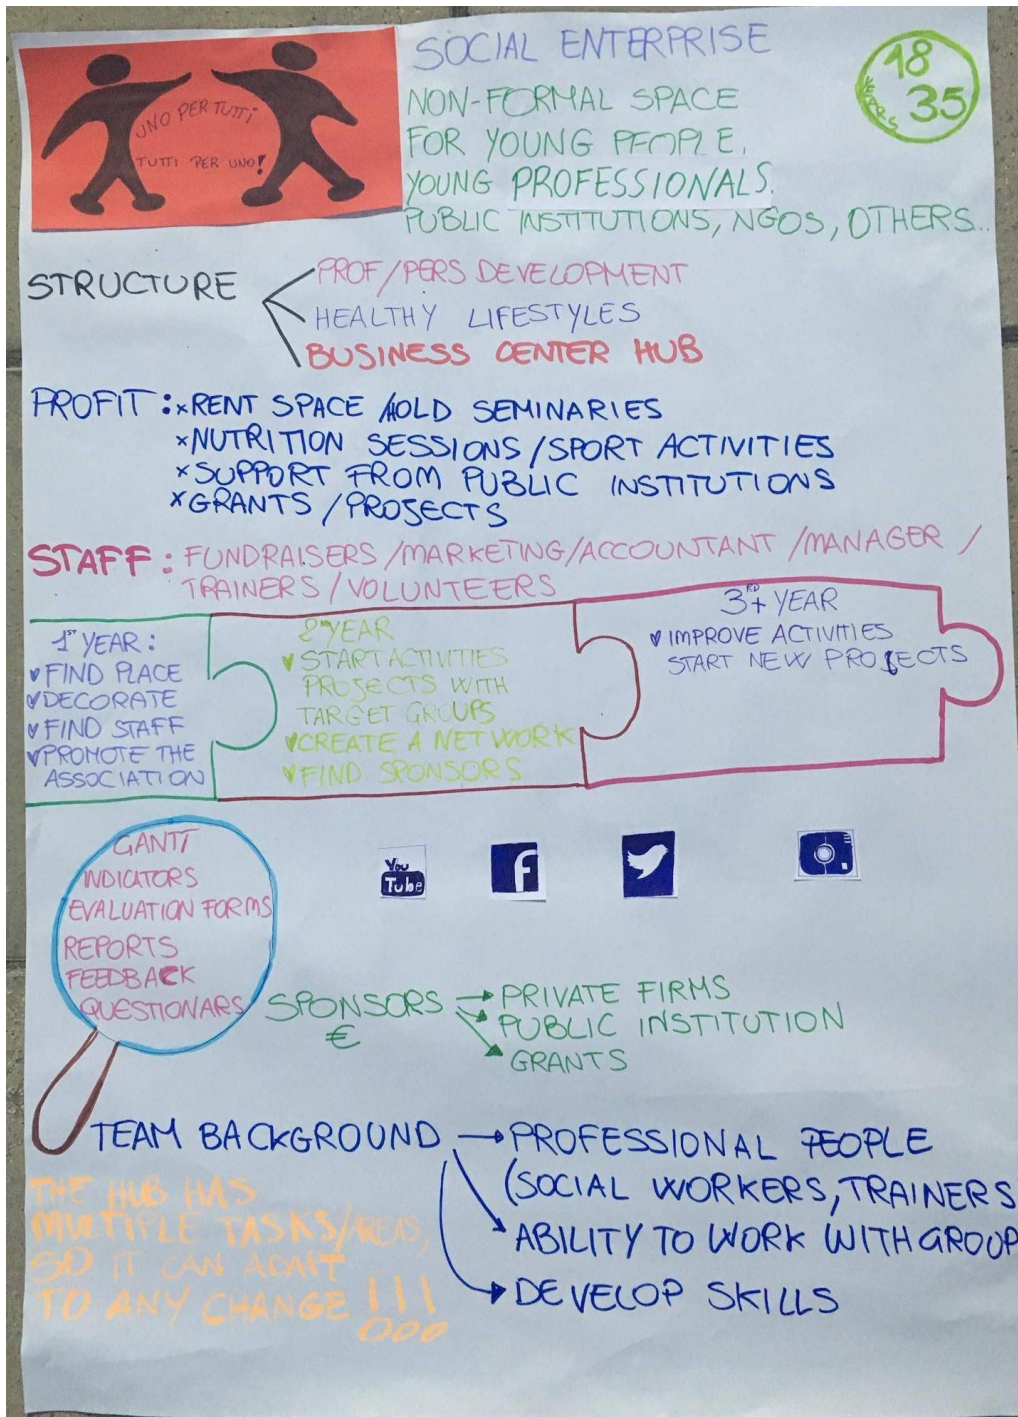 UNO PER TUTTI
TUTTI PER UNO!
SOCIAL ENTERPRISE
18
35
YEARS
NON-FORMAL SPACE
FOR YOUNG PEOPLE,
YOUNG PROFESSIONALS.
PUBLIC INSTITUTIONS, NGOS, OTHERS...
STRUCTURE
PROF/PERS DEVELOPMENT
HEALTHY LIFESTYLES
BUSINESS CENTER HUB
PROFIT: xRENT SPACE /HOLD SEMINARIES
xNUTRITION SESSIONS/SPORT ACTIVITIES
xSUPPORT FROM PUBLIC INSTITUTIONS
xGRANTS/PROJECTS
STAFF: FUNDRAISERS/MARKETING/ACCOUNTANT/MANAGER/
TRAINERS/VOLUNTEERS
1ST YEAR:
FIND PLACE
DECORATE
FIND STAFF
PROMOTE THE
ASSOCIATION
2ND YEAR
START ACTIVITIES
PROJECTS WITH
TARGET GROUPS
CREATE A NETWORK
FIND SPONSORS
3RD+ YEAR
IMPROVE ACTIVITIES
START NEW PROJECTS
GANTT
INDICATORS
EVALUATION FORMS
REPORTS
FEEDBACK
QUESTIONARS
You
Tube
f
SPONSORS
€
PRIVATE FIRMS
PUBLIC INSTITUTION
GRANTS
TEAM BACKGROUND
PROFESSIONAL PEOPLE
(SOCIAL WORKERS, TRAINERS
ABILITY TO WORK WITH GROUP
DEVELOP SKILLS
THE HUB HAS
MULTIPLE TASKS/AREAS,
SO IT CAN ADAPT
TO ANY CHANGE!!!